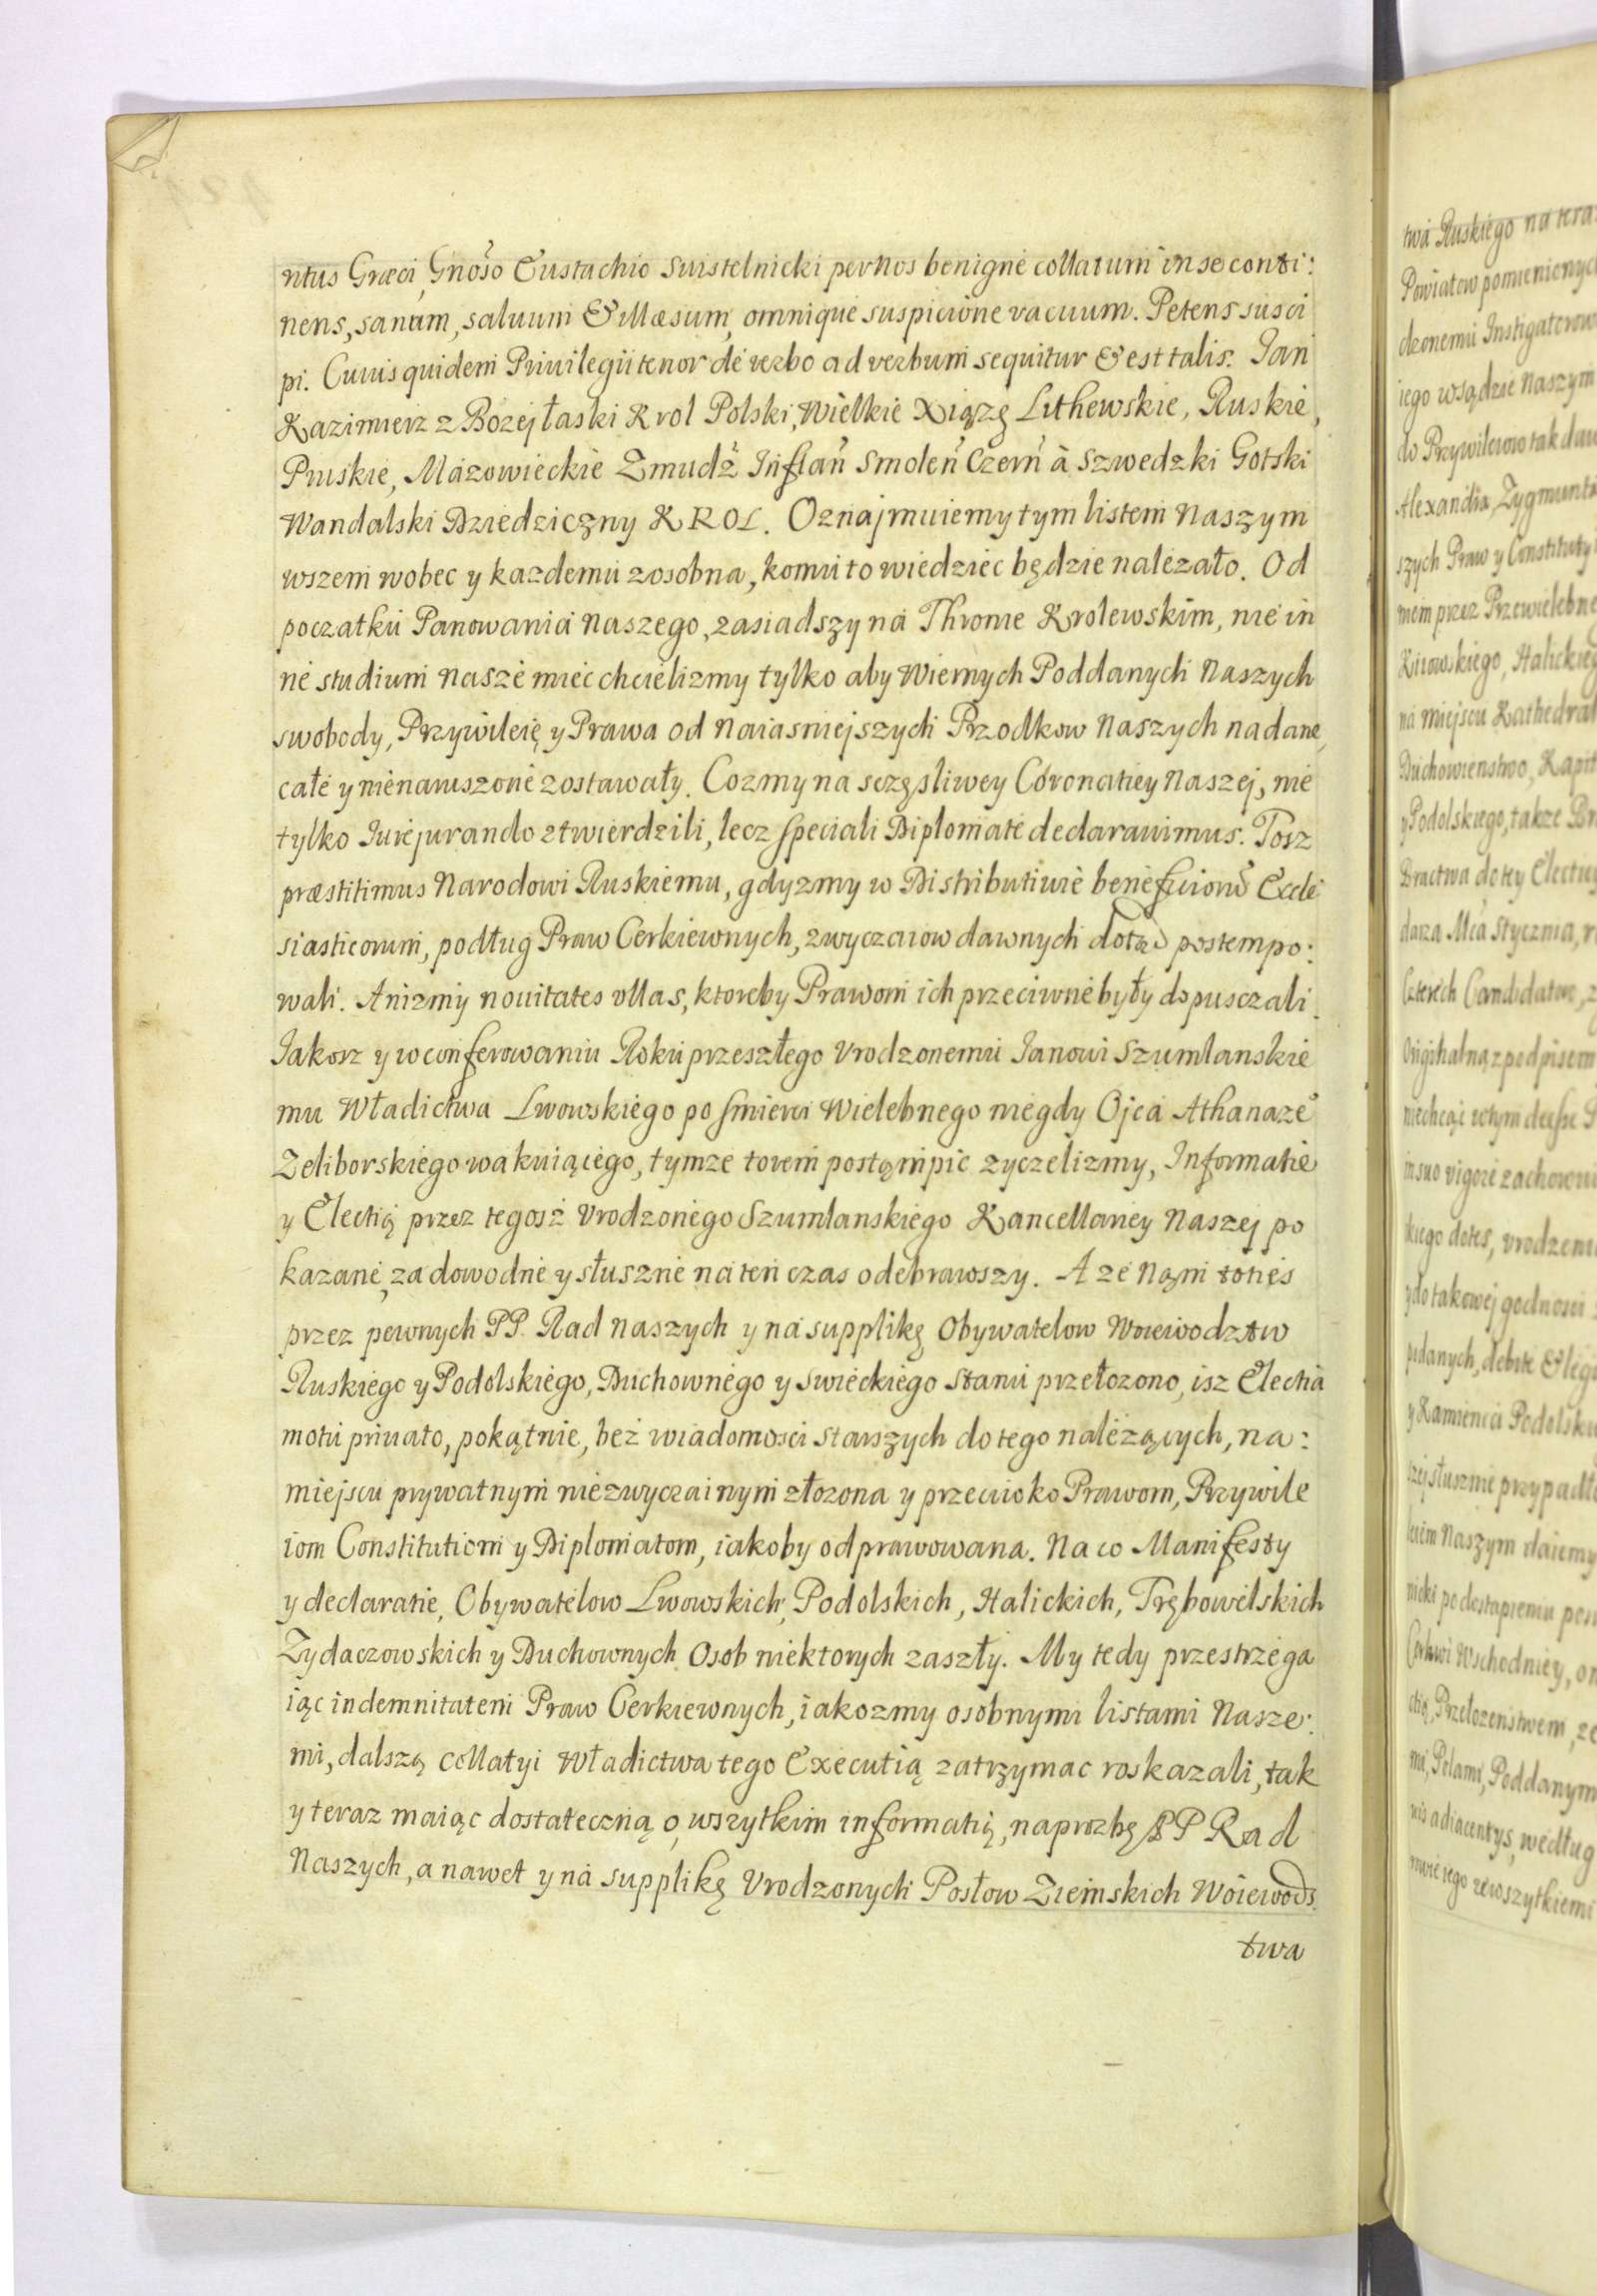 ntus Græci, Gnoso Eustachio Swistelnicki per Nos benigne collatum in se conti:
nens, sanum, saluum & illæsum, omnique suspicione vacuum. Petens susci
pi. Cuius quidem Priuilegii tenor de verbo ad verbum sequitur & est talis. Jan
Kazimierz z Bozej łaski Krol Polski, Wielkie Xiązę Lithewskie, Ruskie,
Pruskie, Mazowieckie Zmudz Inflan Smolen Czern a Szwedzki Gotski
Wandalski Dziedziczny KROL. Oznajmuiemy tym listem Naszym
wszem wobec y kazdemu zosobna, komu to wiedziec będzie nalezało. Od
początku Panowania Naszego, zasiadszy na Thronie Krolewskim, nie in
ne studium Nasze miec chcielizmy tylko aby Wiernych Poddanych Naszych
swobody, Przywileię y Prawa od Naiasniejszych Przodkow Naszych nadane,
całe y nienaruszone zostawały. Cozmy na sczęsliwey Coronatiey Naszej, nie
tylko Iureiurando ztwierdzili, lecz speciali Diplomate declarauimus. Tosz
præstitimus Narodowi Ruskiemu, gdyzmy w Distributiwie beneficiorũ Eccle
siasticorum, podług Praw Cerkiewnych, zwyczaiow dawnych dotąd postempo:
wali. Anizmy nouitates vllas, ktoreby Prawom ich przeciwne były dopusczali.
Jakosz y w conferowaniu Roku przeszłego Vrodzonemu Janowi Szumlanskie
mu Władictwa Lwowskiego po smierci Wielebnego niegdy Ojca Athanaze
Zeliborskiego wakuiącego, tymze torem postąmpic zyczelizmy, Informatie
y Electią przez tegosz Vrodzonego Szumlanskiego Kancellariey Naszej po
kazane, za dowodne y słuszne na ten czas odebrawszy. A ze Nąm toties
przez pewnych PP. Rad Naszych y na supplikę Obywatelow Woiewodztw
Ruskiego y Podolskiego, Duchownego y swieckiego Stanu przełozono, isz Electia
motu priuato, pokątnie, bez wiadomosci starszych do tego nalezących, na:
miejscu prywatnym niezwyczainym złozona y przeciwko Prawom, Przywile
iom Constitutiom y Diplomatom, iakoby odprawowana. Na co Manifesty
y declaratie, Obywatelow Lwowskich, Podolskich, Halickich, Trębowelskich
Zydaczowskich y Duchownych Osob niektorych zaszły. My tedy przestrzega
iąc indemnitatem Praw Cerkiewnych, iakozmy osobnymi listami Nasze:
mi, dalszą collatyi Władictwa tego Executią zatrzymac roskazali, tak
y teraz maiąc dostateczną o wszytkim informatią, na prozbę PP Rad
Naszych, a nawet y na supplikę Vrodzonych Posłow Ziemskich Woiewods
twa
twa Ruskiego na tera
Powiatow pomienionych
dzonemu Instigatorow
iego w sądzie Naszym
do Przywileiow tak daw
Alexandra, Zygmunta
szych Praw y Constituty
mem przez Przewielebne
Kiiowskiego, Halickieg
na miejscu Kathedral
Duchowienstwo, Kapit
y Podolskiego, takze Br
Bractwa do tey Electiy
daza Mca Stycznia, r
Czterech Candidatow, z
Originalną z podpisem
niechcąc wtym
in suo vigore zachowu
kiego dotes, vrodzeni
y do takowej godnosci
podanych, debite & legi
y Kamienca Podolskie
szej słusznie przypadł
leiem Naszym daiemy
nicki po dostapieniu pos
Cerkwi Wschodniey, or
ctią, Przełozenstwem, ze
mi, Polami, Poddanym
nis adiacentys, według
mie iego ze wszytkiemi